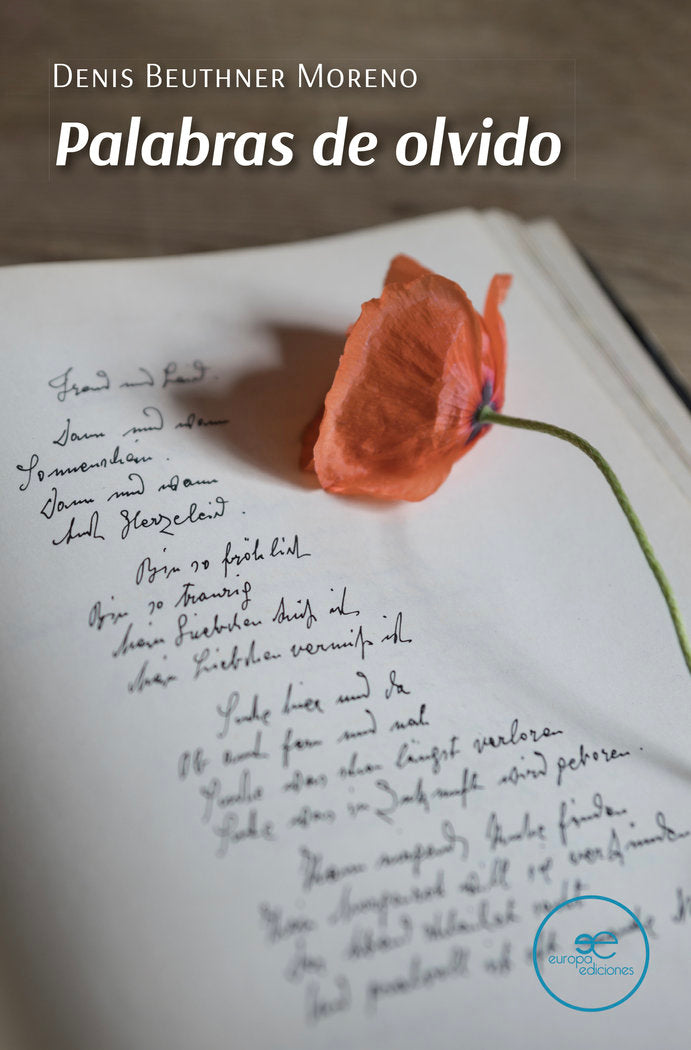 DENIS BEUTHNER MORENO
Palabras de olvido
und
Dann und wann
Sonnenschein.
Dann und wann
Auch Herzeleid.
Bin so fröhlich
Bin so traurig
Mein Liebchen such ich
Mein Liebchen vermiß ich
Suche hier und da
Ob auch fern und nah
Suche was schon längst verloren
Suche was in Zukunft wird geboren.
Kann nirgends Ruhe finden
will
ich
europa
ediciones